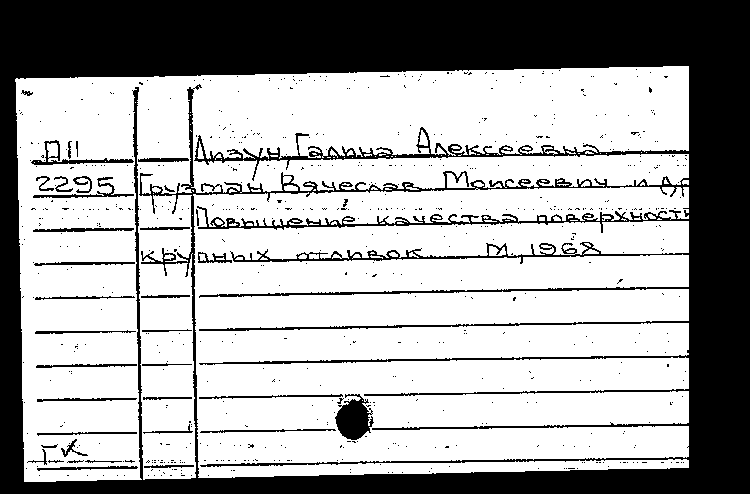 Д11 Лизун, Галина Алексеевна
2295 Грузман, Вячеслав Моисеевич и др
Повышение качества поверхности
крупных отливок. М., 1968
ГК